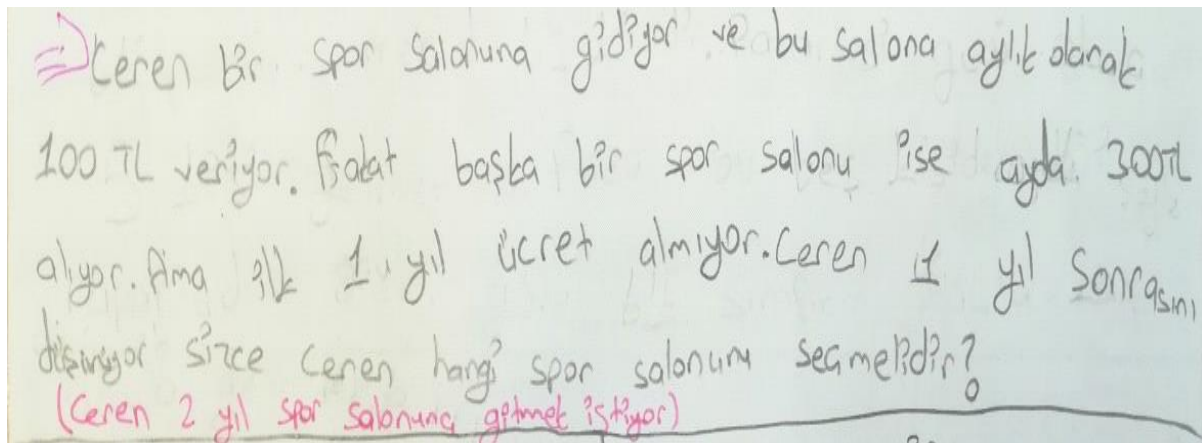 ⇒ Ceren bir spor salonuna gidiyor ve bu salona aylık olarak
100 TL veriyor. Fakat başka bir spor salonu ise ayda. 300TL
alıyor. Ama ilk 1 yıl ücret almıyor. Ceren 1 yıl Sonrasını
düşünüyor sizce Ceren hangi spor salonunu seçmelidir?
(Ceren 2 yıl spor salonuna gitmek istiyor)